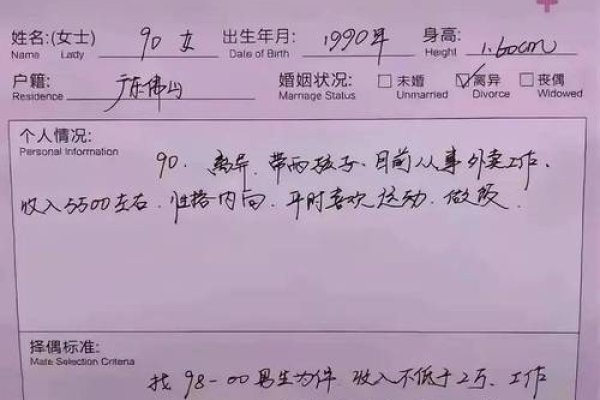 姓名:(女士) 90 女 出生年月: 1990年 身高: 1.60cm
Name Lady Date of Birth Height
户籍: 广东佛山 婚姻状况: 未婚 离异 丧偶
Residence Marriage Status Unmarried Divorce Widowed
个人情况:
Personal Information
90. 离异. 带两孩子. 目前从事外卖工作.
收入5500左右. 性格内向. 平时喜欢运动. 做饭
择偶标准:
Mate Selection Criteria
找 98-00 男生为伴 收入不低于2万、工作